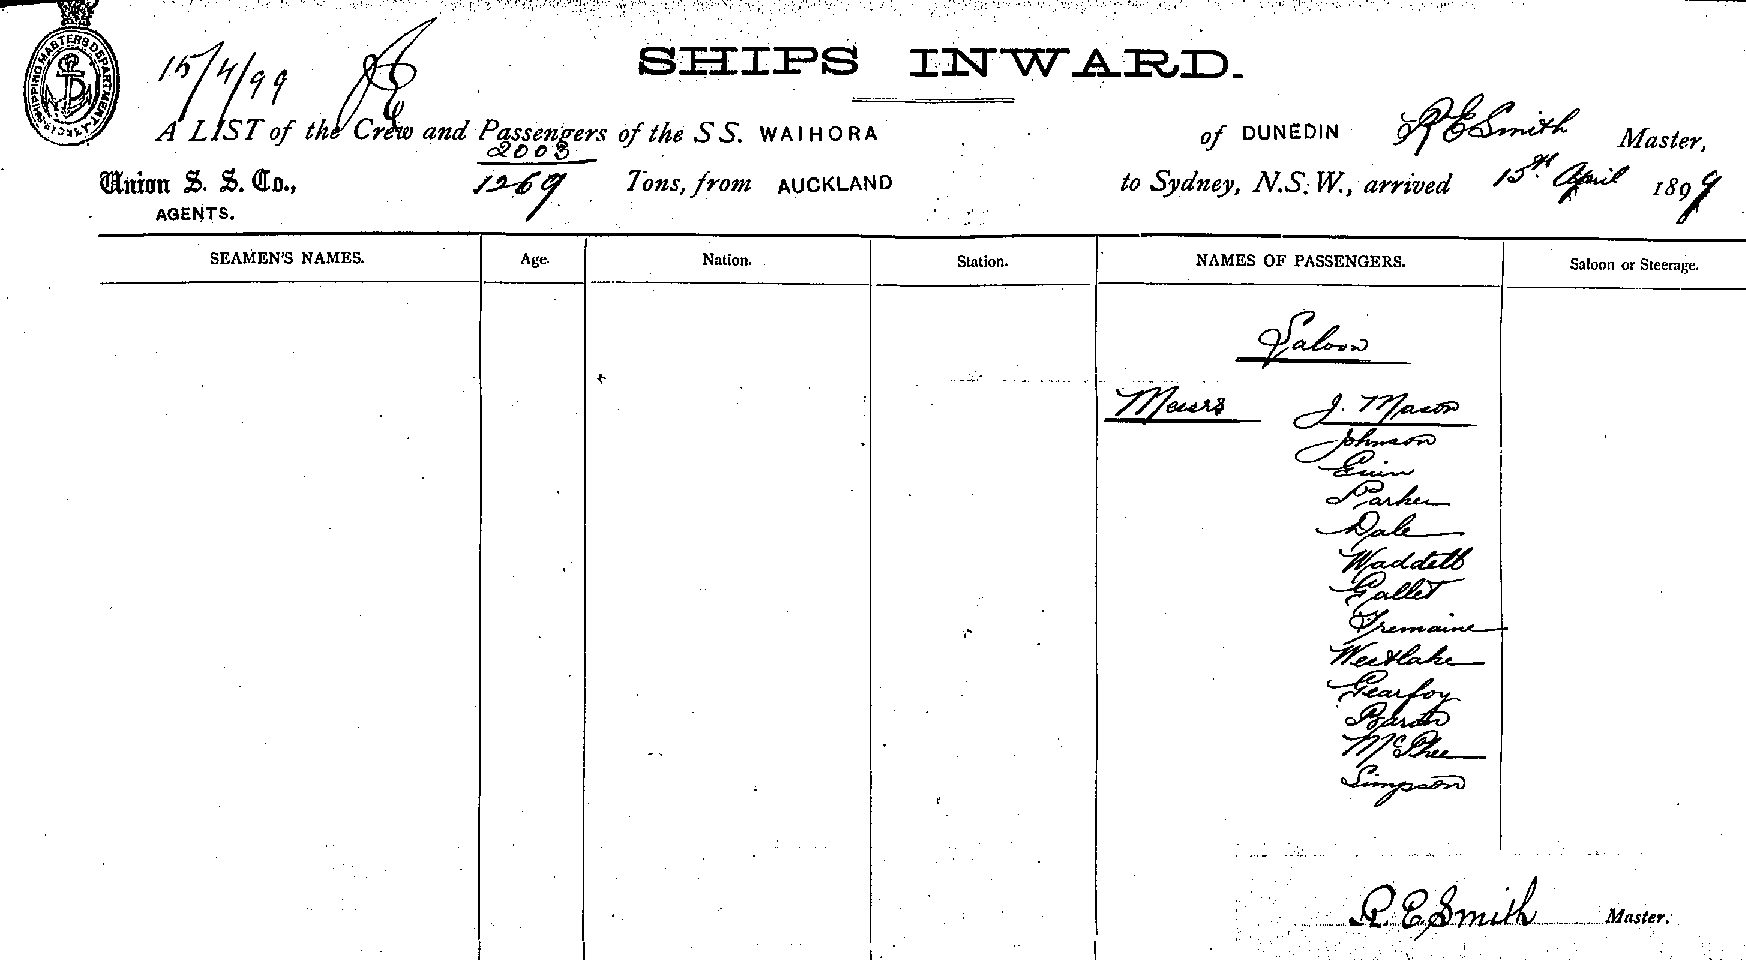 SHIPPING MASTERS DEPARTMENT
15/4/99
SHIPS INWARD.
A LIST of the Crew and Passengers of the SS. WAIHORA of DUNEDIN R E Smith Master,
2003
Union S. S. Co., 1269 Tons, from AUCKLAND to Sydney, N.S.W., arrived 15th April 1899
AGENTS.
SEAMEN'S NAMES. Age. Nation. Station. NAMES OF PASSENGERS. Saloon or Steerage.
Saloon
Messrs J. Mason
Johnson
Parker
Dale
Waddell
Gallet
Tremaine
Westlake
Gearfoy
McPhee
Simpson
R. E Smith Master.